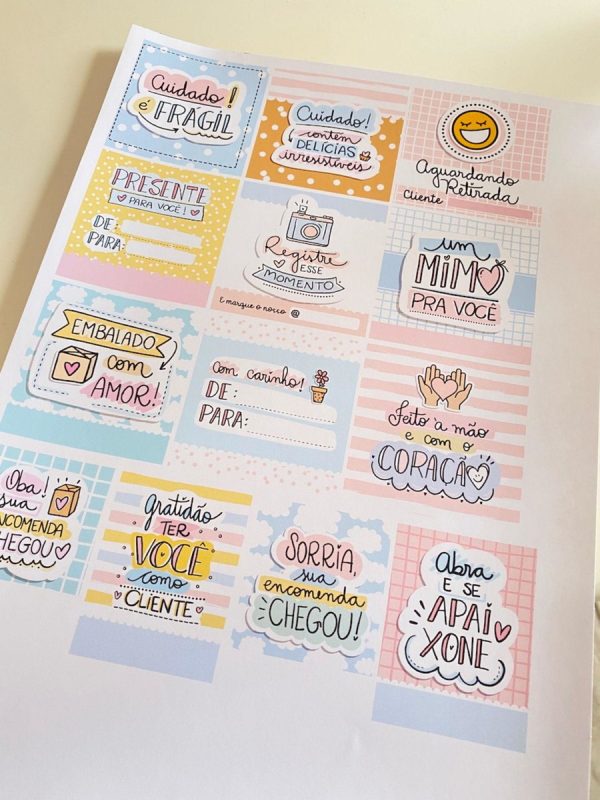 Cuidado!
é FRAGIL
Cuidado!
contém
DELÍCIAS
irresistíveis
Aguardando
Retirada
Cliente
PRESENTE
PARA VOCÊ!
DE:
PARA:
Registre
ESSE
MOMENTO
E marque o nosso @
um
MIMO
PRA VOCÊ
EMBALADO
com
AMOR!
Com carinho!
DE:
PARA:
Feito à mão
e com o
CORAÇÃO
Oba!
sua
ENCOMENDA
CHEGOU
Gratidão
TER
VOCÊ
como
CLIENTE
SORRIA,
sua
encomenda
CHEGOU!
Abra
E SE
APAI
XONE